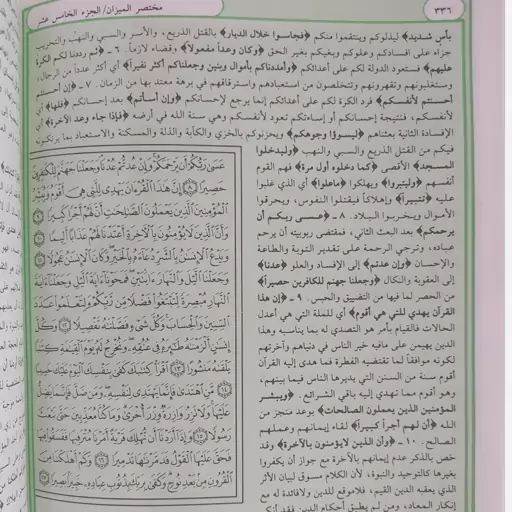 ٣٣٦
مختصر الميزان/ الجزء الخامس عشر
بأس شديد﴾ ليذلوكم وينتقموا منكم ﴿فجاسوا خلال الديار﴾ بالقتل الذريع، والأسر والسبي والنهب والتخريب
جزاء على افسادكم وعلوكم وبغيكم بغير الحق ﴿وكان وعداً مفعولاً﴾ وقضاء لازماً. ٦ـ ﴿ثم رددنا لكم الكرة
عليهم﴾ فستعود الدولة لكم على أعدائكم ﴿وأمددناكم بأموال وبنين وجعلناكم أكثر نفيراً﴾ أي أكثر عدداً من الرجال،
وستغلبونهم وتقهرونهم وتتخلصون من استعبادهم واسترقاقهم في برهة معتد بها من الزمان. ٧ـ ﴿إن أحسنتم
أحسنتم لأنفسكم﴾ فرد الكرة لكم على أعدائكم إنما يرجع لإحسانكم ﴿وإن أسأتم﴾ بعد إحسانكم ﴿فلها﴾ أي
لأنفسكم، فنتيجة إحسانكم أو إساءتكم تعود لأنفسكم وهي سنة الله في أرضه ﴿فإذا جاء وعد الآخرة﴾ أي
الإفسادة الثانية بعثناهم ﴿ليسوؤا وجوهكم﴾ ويحزنوكم بالخزي والكآبة والذلة والمسكنة والاستعباد بما يرتكبونه
فيكم من القتل الذريع والسبي والنهب ﴿وليدخلوا
المسجد﴾ الأقصى ﴿كما دخلوه أول مرة﴾ فهم القوم
أنفسهم ﴿وليتبروا﴾ ويهلكوا ﴿ماعلوا﴾ أي الذي غلبوا
عليه ﴿تتبيراً﴾ وإهلاكاً فيقتلوا النفوس، ويحرقوا
الأموال ويخربوا البلاد. ٨ـ ﴿عسى ربكم أن
يرحمكم﴾ بعد البعث الثاني، فمقتضى ربوبيته أن يرحم
عباده، وترجي الرحمة على تقدير التوبة والطاعة
والإحسان ﴿وإن عدتم﴾ إلى الإفساد والعلو ﴿عدنا﴾
إلى العقوبة والنكال ﴿وجعلنا جهنم للكافرين حصيراً﴾
من الحصر لما فيها من التضييق والحبس. ٩ـ ﴿إن هذا
القرآن يهدي للتي هي أقوم﴾ أي للملة التي هي أعدل
الحالات فالقيام بأمر هو التصدي له بما يناسبه وهذا
الدين يهيمن على مافيه خير الناس في دنياهم وآخرتهم
لكونه موافقاً لما تقتضيه الفطرة فما هدى إليه القرآن
أقوم سنة من السنن التي يديرها الناس فيما بينهم،
وهو أقوم مما تهدي إليه باقي الشرائع. ﴿ويبشر
المؤمنين الذين يعملون الصالحات﴾ بوعد منجز من
الله ﴿أن لهم أجراً كبيراً﴾ لقاء إيمانهم وعملهم
الصالح. ١٠ـ ﴿وأن الذين لايؤمنون بالآخرة﴾ وقد
خص بالذكر عدم إيمانهم بالآخرة مع جواز أن يكفروا
بغيرها كالتوحيد والنبوة، لأن الكلام مسوق لبيان الأثر
الذي يعقبه الدين القيم، فلاموقع للدين ولافائدة له مع
إنكار المعاد، ومن لم يطبق أحكام الدين فقد أنكر
عَسَىٰ رَبُّكُمْ أَن يَرْحَمَكُمْ وَإِنْ عُدتُّمْ عُدْنَا وَجَعَلْنَا جَهَنَّمَ لِلْكَافِرِينَ
حَصِيرًا ٨ إِنَّ هَٰذَا الْقُرْآنَ يَهْدِي لِلَّتِي هِيَ أَقْوَمُ وَيُبَشِّرُ
الْمُؤْمِنِينَ الَّذِينَ يَعْمَلُونَ الصَّالِحَاتِ أَنَّ لَهُمْ أَجْرًا كَبِيرًا ٩
وَأَنَّ الَّذِينَ لَا يُؤْمِنُونَ بِالْآخِرَةِ أَعْتَدْنَا لَهُمْ عَذَابًا أَلِيمًا ١٠
وَيَدْعُ الْإِنسَانُ بِالشَّرِّ دُعَاءَهُ بِالْخَيْرِ وَكَانَ الْإِنسَانُ عَجُولًا ١١
وَجَعَلْنَا اللَّيْلَ وَالنَّهَارَ آيَتَيْنِ فَمَحَوْنَا آيَةَ اللَّيْلِ وَجَعَلْنَا آيَةَ
النَّهَارِ مُبْصِرَةً لِّتَبْتَغُوا فَضْلًا مِّن رَّبِّكُمْ وَلِتَعْلَمُوا عَدَدَ
السِّنِينَ وَالْحِسَابَ وَكُلَّ شَيْءٍ فَصَّلْنَاهُ تَفْصِيلًا ١٢ وَكُلَّ
إِنسَانٍ أَلْزَمْنَاهُ طَائِرَهُ فِي عُنُقِهِ وَنُخْرِجُ لَهُ يَوْمَ الْقِيَامَةِ كِتَابًا
يَلْقَاهُ مَنشُورًا ١٣ اقْرَأْ كِتَابَكَ كَفَىٰ بِنَفْسِكَ الْيَوْمَ عَلَيْكَ حَسِيبًا
١٤ مَّنِ اهْتَدَىٰ فَإِنَّمَا يَهْتَدِي لِنَفْسِهِ وَمَن ضَلَّ فَإِنَّمَا يَضِلُّ
عَلَيْهَا وَلَا تَزِرُ وَازِرَةٌ وِزْرَ أُخْرَىٰ وَمَا كُنَّا مُعَذِّبِينَ حَتَّىٰ نَبْعَثَ
رَسُولًا ١٥ وَإِذَا أَرَدْنَا أَن نُّهْلِكَ قَرْيَةً أَمَرْنَا مُتْرَفِيهَا فَفَسَقُوا فِيهَا
فَحَقَّ عَلَيْهَا الْقَوْلُ فَدَمَّرْنَاهَا تَدْمِيرًا ١٦ وَكَمْ أَهْلَكْنَا مِنَ
الْقُرُونِ مِن بَعْدِ نُوحٍ وَكَفَىٰ بِرَبِّكَ بِذُنُوبِ عِبَادِهِ خَبِيرًا بَصِيرًا